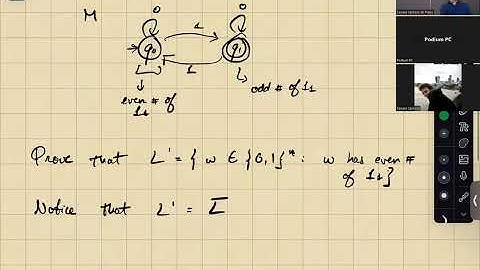 M
0
0
1
q₀
q₁
1
even # of
1s
odd # of 1s
Podium PC
Prove that L' = { w ∈ {0,1}* : w has even #
of 1s}
Notice that L' = L̅